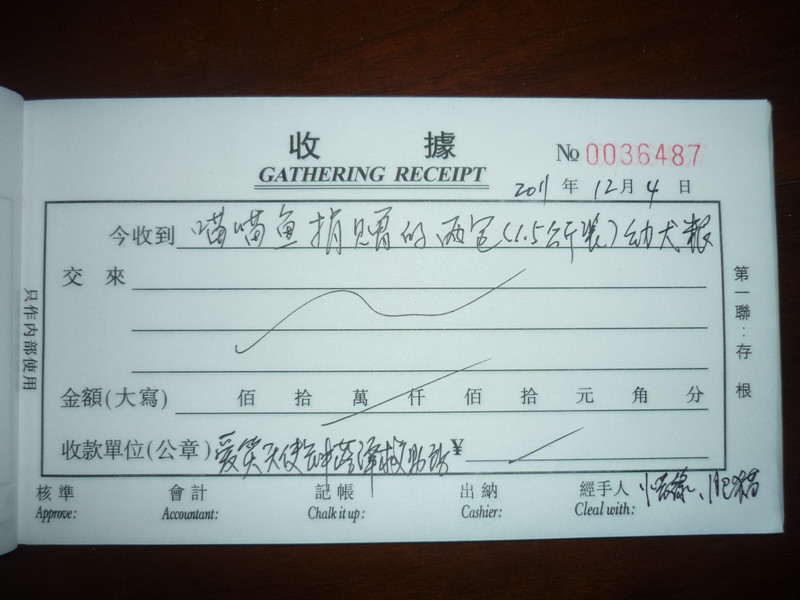 收 據
GATHERING RECEIPT
No 0036487
2011 年 12 月 4 日
今收到 喵喵鱼捐赠的两包(1.5公斤装)幼犬粮
交 來
金額(大寫) 佰 拾 萬 仟 佰 拾 元 角 分
收款單位(公章) 爱笑天使 救助站 ¥
核準 會計 記帳 出納 經手人
Approve: Accountant: Chalk it up: Cashier: Cleal with:
第一聯:存根
只作内部使用